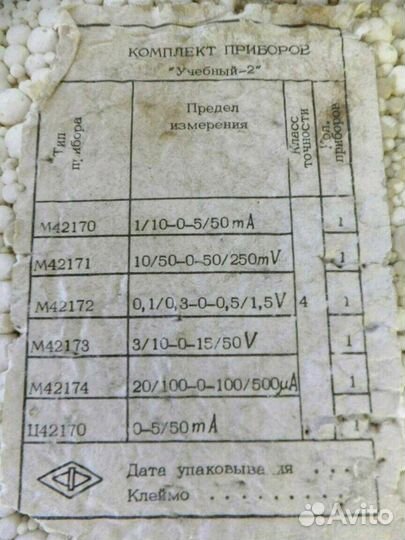 КОМПЛЕКТ ПРИБОРОВ
"Учебный-2"
Тип прибора
Предел измерения
Класс точности
Кол. приборов
М42170 1/10-0-5/50 mA 1
М42171 10/50-0-50/250mV 1
М42172 0,1/0,3-0-0,5/1,5V 4 1
М42173 3/10-0-15/50 V 1
М42174 20/100-0-100/500μA 1
Ц42170 0-5/50 mA 1
Дата упаковыва ия . . .
Клеймо . . . .
Avito